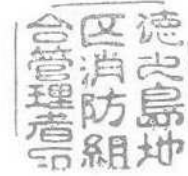 徳之島地
区消防組
合管理者印